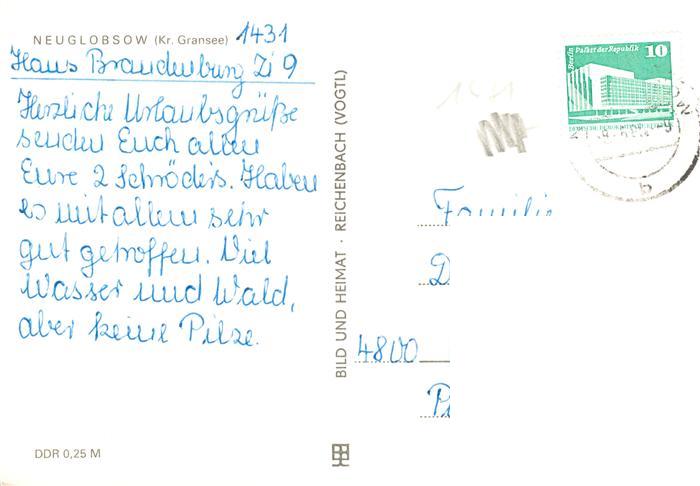 NEUGLOBSOW (Kr. Gransee) 1431
Haus Brandenburg Zi 9
Herzliche Urlaubsgrüße
senden Euch allen
Eure 2 Schröders. Haben
es mit allem sehr
gut getroffen. Viel
Wasser und Wald,
aber keine Pilze.
DDR 0,25 M
BILD UND HEIMAT · REICHENBACH (VOGTL)
Berlin Palast der Republik 10
DEUTSCHE DEMOKRATISCHE REPUBLIK
b
Familie
D
4800